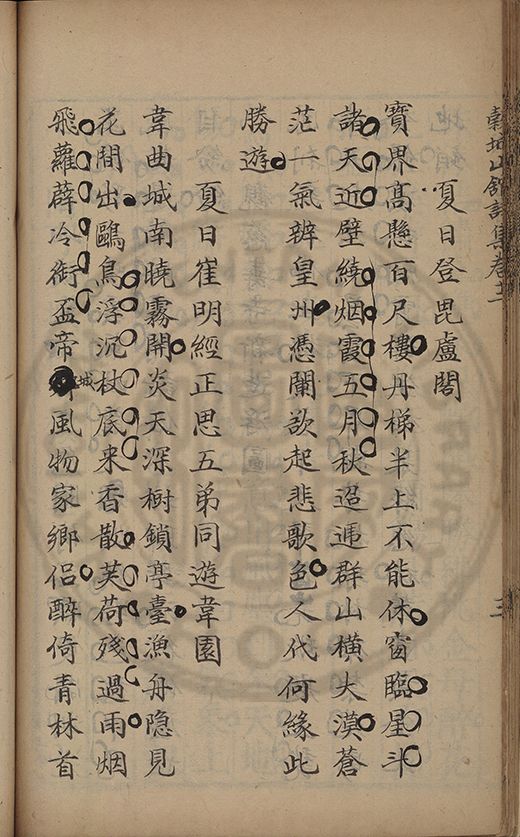 夏日登毘盧閣
寶界高懸百尺樓丹梯半上不能休窗臨星斗
諸天近壁繞烟霞五月秋迢遞群山橫大漠蒼
茫一氣辨皇州憑闌欲起悲歌色人代何緣此
勝遊
夏日崔明經正思五弟同遊韋園
韋曲城南曉霧開炎天深樹鎖亭臺漁舟隐見
花間出鷗鳥浮沉杖底来香散芙荷殘過雨烟
飛蘿薜冷銜盃帝城風物家鄉侶醉倚青林首
三